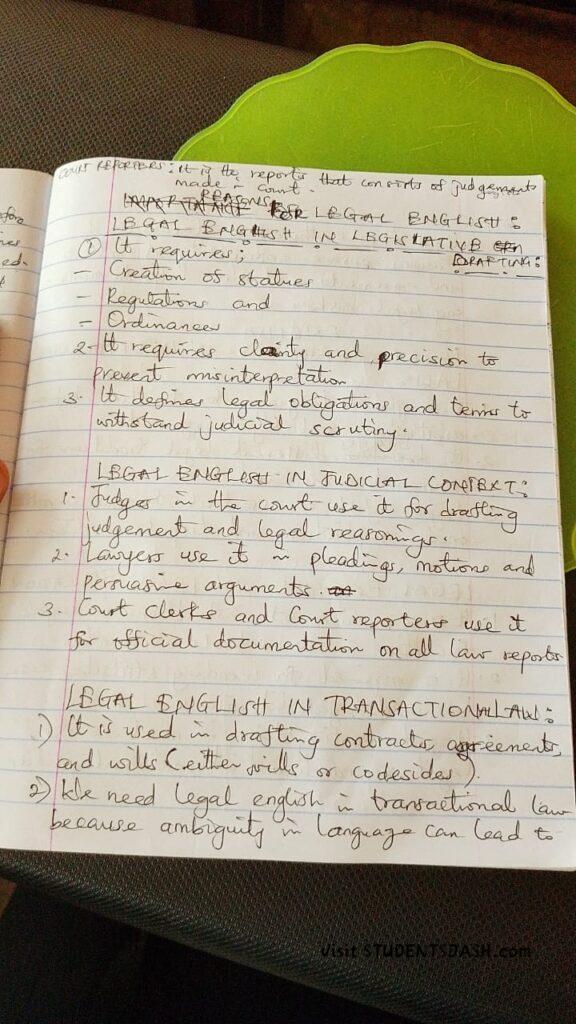 COURT REPORTERS: It is the reports that consists of judgements
made in court.
REASONS
IMPORTANCE FOR LEGAL ENGLISH:
LEGAL ENGLISH IN LEGISLATIVE
DRAFTING:
① It requires;
- Creation of statues
- Regulations and
- Ordinances
2- It requires clarity and precision to
prevent misinterpretation
3. It defines legal obligations and terms to
withstand judicial scrutiny.
LEGAL ENGLISH IN JUDICIAL CONTEXT:
1. Judges in the court use it for drafting
judgement and legal reasonings.
2. Lawyers use it in pleadings, motions and
persuasive arguments.
3. Court clerks and Court reporters use it
for official documentation on all law reports
LEGAL ENGLISH IN TRANSACTIONAL LAW:
1) It is used in drafting contracts, agreements,
and wills (either wills or codesides).
2) We need legal english in transactional law
because ambiguity in language can lead to
fore
ed.
Visit STUDENTSDASH.com